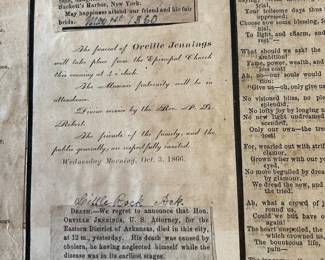 Sackett's Harbor, New York.
May happiness attend our friend and his fair
bride. May 1st 1860
The funeral of Orville Jennings
will take place from the Episcopal Church
this evening at 4 o'clock.
The Masonic fraternity will be in
attendance.
Divine service by the Rev.
The friends of the family, and the
public generally, are respectfully invited.
Wednesday Morning, Oct. 3, 1866.
Little Rock Ark.
DEATH.—We regret to announce that Hon.
ORVILLE JENNINGS, U. S. Attorney, for the
Eastern District of Arkansas, died in this city,
at 12 m., yesterday. His death was caused by
cholera, he having neglected himself while
the disease was in its earliest stages.
Your toilsome days thus
To light, and charm, and
rest!
What should we ask? the
ambition?
Fame, power, wealth, and
Ah, no—our souls would
tion;
Give us—oh, only give us
No visioned bliss, no ple
splendid,
No lofty joy of all to drea
No new light undreamed
scended,
Only our own—the tre
For, wearied out with stri
clamor,
Grown wiser with our
eyed,
No more beguiled by dre
glamour,
We dread the new, and
the tried.
Ah, what a crown of
round us
Could we but have our
again!
The heart unspoiled, the
which crowned us,
The bounteous life
pain—